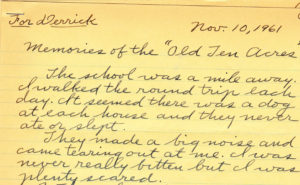 For Derrick
Nov. 10, 1961
Memories of the "Old Ten Acres
The school was a mile away.
I walked the round trip each
day. It seemed there was a dog
at each house and they never
ate or slept.
They made a big noise and
came tearing out at me. I was
never really bitten but I was
plenty scared.